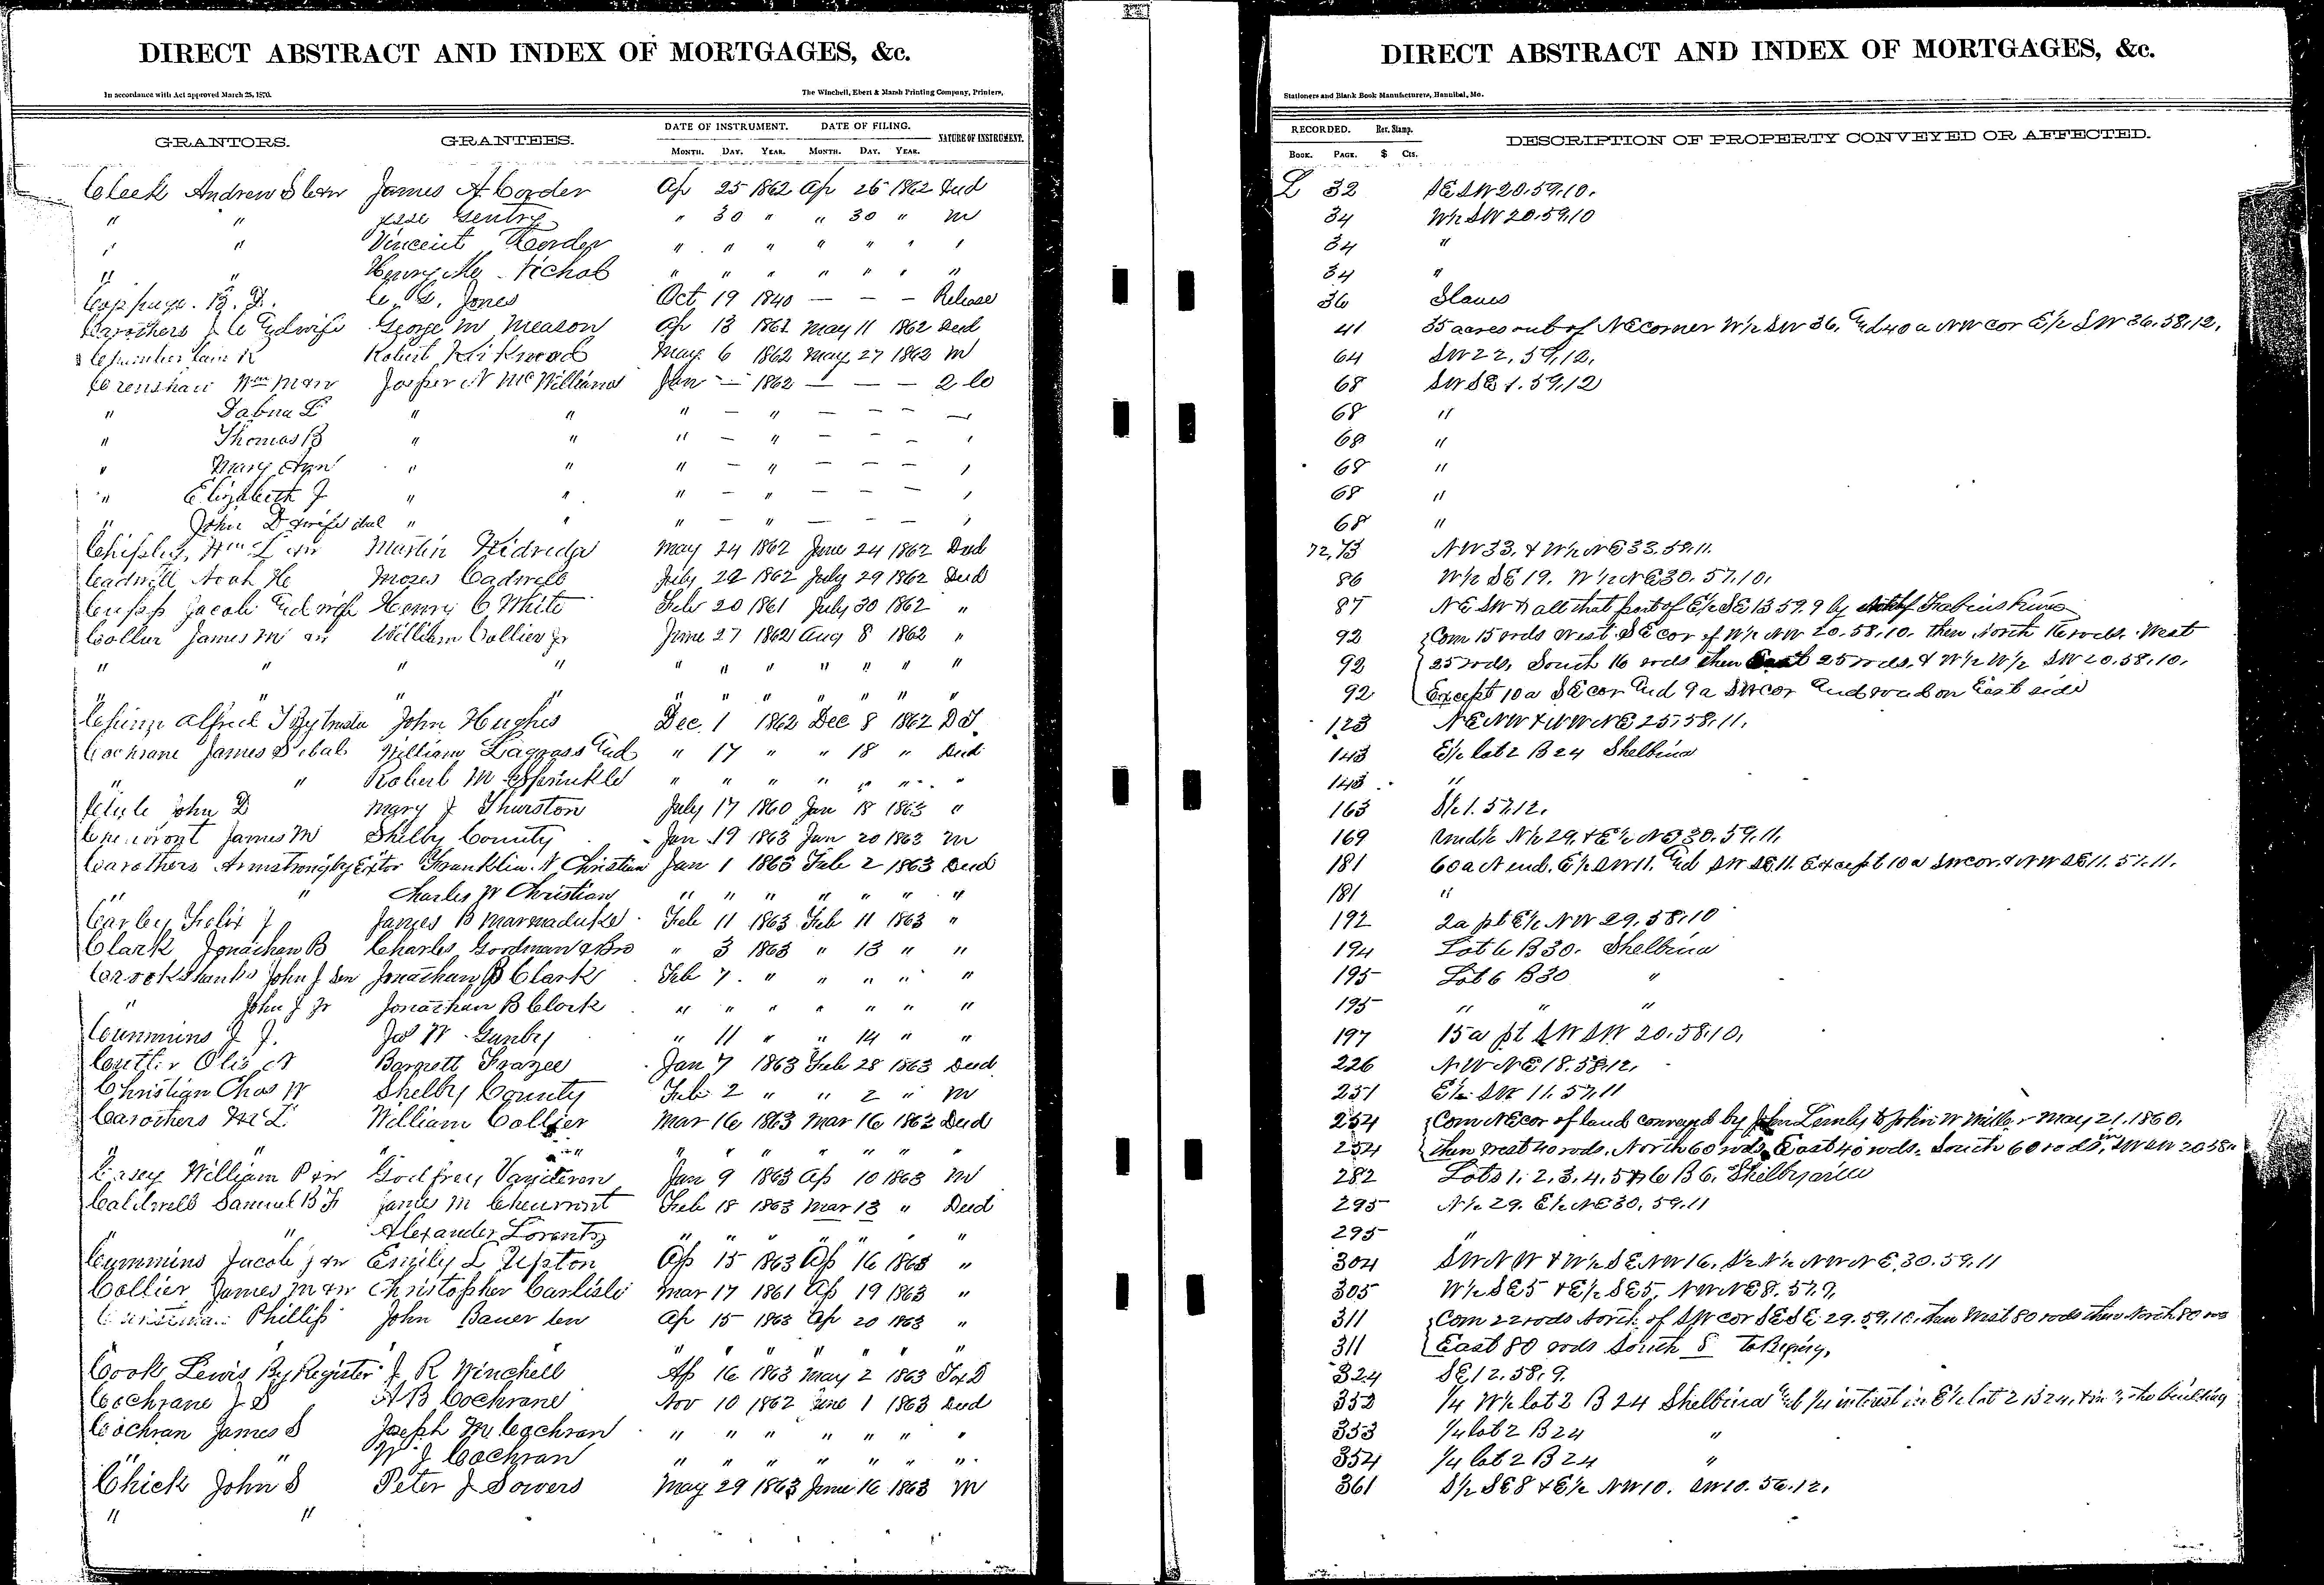 DIRECT ABSTRACT AND INDEX OF MORTGAGES, &c.
In accordance with Act approved March 25, 1870.
The Winchell, Ebert & Marsh Printing Company, Printers,
GRANTORS. GRANTEES. DATE OF INSTRUMENT. DATE OF FILING. NATURE OF INSTRUMENT.
MONTH. DAY. YEAR. MONTH. DAY. YEAR.
Cleek Andrew S James A Corder Ap 25 1862 Ap 26 1862 Deed
" " Jesse Gentry " 30 " " 30 " M
" " Vincent Corder " " " " " " "
" " Henry Mc Nichol " " " " " " "
B. F. C. C. Jones Oct 19 1840 — — — Release
Carothers J C & wife George W Meason Ap 13 1862 May 11 1862 Deed
Robert Kirkwood May 6 1862 May 27 1862 M
Crenshaw Wm Jasper N McWilliams Jan — 1862 — — — 2 C
" " " " — " — — —
" Thomas B " " " — " — — — "
" Mary Ann " " " — " — — — "
" Elizabeth J " " " — " — — — "
" John D & wife et al " " " — " — — — "
Wm L Martin May 24 1862 June 24 1862 Deed
Cadwell Noah H Moses Cadwell July 29 1862 July 29 1862 Deed
Jacob & wife Henry C White Feb 20 1861 July 30 1862 "
Collier James M William Collier Jr June 27 1862 Aug 8 1862 "
" " " " " " " " " " "
" " " " " " " " " " "
Alfred John Hughes Dec 1 1862 Dec 8 1862 D T
Cochrane James S et al William & " 17 " " 18 " Deed
" " Robert M Sprinkle " " " " " " "
John D Mary J Thurston July 17 1860 Jan 18 1863 "
Cheuvront James M Shelby County Jan 19 1863 Jan 20 1863 M
Carothers Armstrong by Extor Franklin N Christian Jan 1 1863 Feb 2 1863 Deed
" " Charles W Christian " " " " " " "
Felix J James B Marmaduke Feb 11 1863 Feb 11 1863 "
Clark Jonathan B Charles Goodman & Bro " 3 1863 " 13 " "
Crookshanks John J Sen Jonathan B Clark Feb 7 " " " " "
" John J Jr Jonathan B Clark " " " " " " "
Cummins J J. Jos W Gunby " 11 " " 14 " "
Otis A Barnett Frazee Jan 7 1863 Feb 28 1863 Deed
Christian Chas W Shelby County Feb 2 " " 2 " M
Carothers William Collier Mar 16 1863 Mar 16 1863 Deed
" " " " " " " " "
William P Godfrey Jan 9 1863 Ap 10 1863 M
Caldwell Samuel B F James M Cheuvront Feb 18 1863 Mar 13 " Deed
" Alexander Lorentz " " " " " " "
Cummins Jacob J Emily L Ap 15 1863 Ap 16 1863 "
Collier James M Christopher Carlisle Mar 17 1861 Ap 19 1863 "
Phillip John Bauer Sen Ap 15 1863 Ap 20 1863 "
" " " " " "
Cook Lewis By Register J R Winchell Ap 16 1863 May 2 1863
Cochrane J S A B Cochrane Nov 10 1862 June 1 1863 Deed
Cochran James S Joseph M Cochran " " " " " " "
" " W J Cochran " " " " " " "
Chick John S Peter J Sowers May 29 1863 June 16 1863 M
" "
DIRECT ABSTRACT AND INDEX OF MORTGAGES, &c.
Stationers and Blank Book Manufacturers, Hannibal, Mo.
RECORDED. Rev. Stamp. DESCRIPTION OF PROPERTY CONVEYED OR AFFECTED.
BOOK. PAGE. $ Cts.
L 32 SE SW 20.59.10.
34 W½ SW 20.59.10
34 "
34 "
36 Slaves
41 35 acres out of NE corner W½ SW 36. & 40 a NW cor E½ SW 36.58.12.
64 SW 22.59.12.
68 SW SE 1.59.12
68 "
68 "
68 "
68 "
68 "
72,73 NW 33. & W½ NE 33.59.11.
86 W½ SE 19. W½ NE 30.57.10.
87 NE SW & all that part of E½ SE 13 59.9 by
92 Com 15 rods West SE cor of W½ NW 20.58.10. then North 16 rods. West
92 25 rods, South 16 rods then East 25 rods. & W½ W½ SW 20.58.10.
92 Except 10 a SE cor & 9 a SW cor and road on East side
123 NE NW & NW NE 25.58.11.
143 E½ lot 2 B 24 Shelbina
143 "
163 S½ 1.57.12.
169 Und ½ N½ 29. & E½ NE 30.59.11.
181 60 a N end. E½ SW 11. & SW SE 11. Except 10 a SW cor. & NW SE 11.57.11.
181 "
192 2a pt E½ NW 29.58.10
194 Lot 6 B 30. Shelbina
195 Lot 6 B 30 "
195 " " "
197 15 a pt SW SW 20.58.10.
226 NW NE 18.58.12.
251 E½ SW 11.57.11
254 Com NE cor of land conveyed by John to John W Miller May 21.1860.
254 then West 40 rods. North 60 rods East 40 rods. South 60 rods,
282 Lots 1.2.3.4.5 & 6 B 6. Shelbyville
295 N½ 29. E½ NE 30.59.11
295 "
304 SW NW & W½ SE NW 16. S½ N½ NW NE 30.59.11
305 W½ SE 5 & E½ SE 5. NW NE 8.57.9.
311 Com 22 rods North of SW cor SE SE 29.59.10. then West 80 rods then North 80 rods
311 East 80 rods South to Beging.
324 SE 12.58.9.
353 ¼ W½ lot 2 B 24 Shelbina & ¼ interest in E½ lot 2 B 24. & in the building
353 ¼ lot 2 B 24 "
354 ¼ lot 2 B 24 "
361 S½ SE 8 & E½ NW 10. SW 10.56.12.